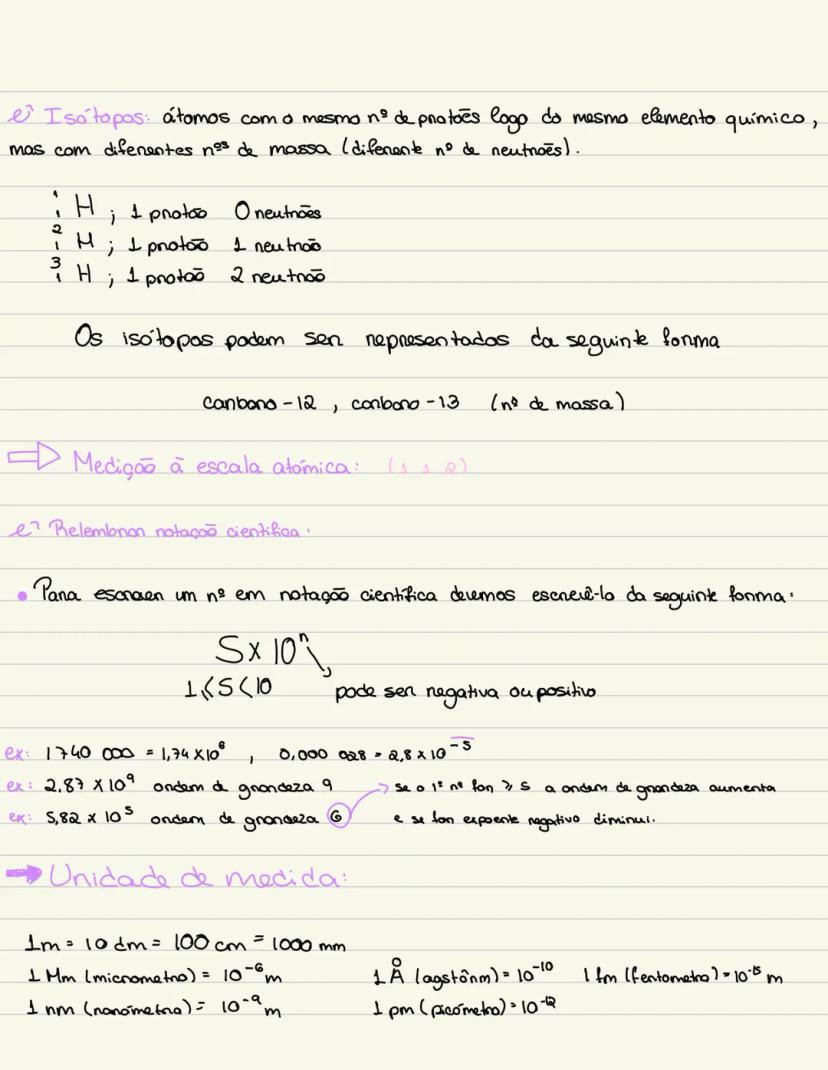 Isótopos: átomos com o mesmo nº de protões logo do mesmo elemento químico,
mas com diferentes nºs de massa (diferente nº de neutrões).
¹₁ H ; 1 protão 0 neutrões
²₁ H ; 1 protão 1 neutrão
³₁ H ; 1 protão 2 neutrão
Os isótopos podem ser representados da seguinte forma
carbono-12, carbono-13 (nº de massa)
⇒ Medição à escala atómica: (1 1 2)
Relembrar notação científica:
• Para escrever um nº em notação científica devemos escrevê-lo da seguinte forma:
S x 10ⁿ
1 ≤ S < 10 pode ser negativa ou positivo
ex: 1740 000 = 1,74 x 10⁶ , 0,000 028 = 2,8 x 10⁻⁵
ex: 2,87 x 10⁹ ordem de grandeza 9 → se o 1º nº for ≥ 5 a ordem de grandeza aumenta
ex: 5,82 x 10⁵ ordem de grandeza 6 e se for expoente negativo diminui.
➡ Unidade de medida:
1m = 10 dm = 100 cm = 1000 mm
1 Mm (micrometro) = 10⁻⁶ m 1 Å (agstônm) = 10⁻¹⁰ 1 fm (fentometro) = 10⁻¹⁵ m
1 nm (nanómetro) = 10⁻⁹ m 1 pm (picómetro) = 10⁻¹²